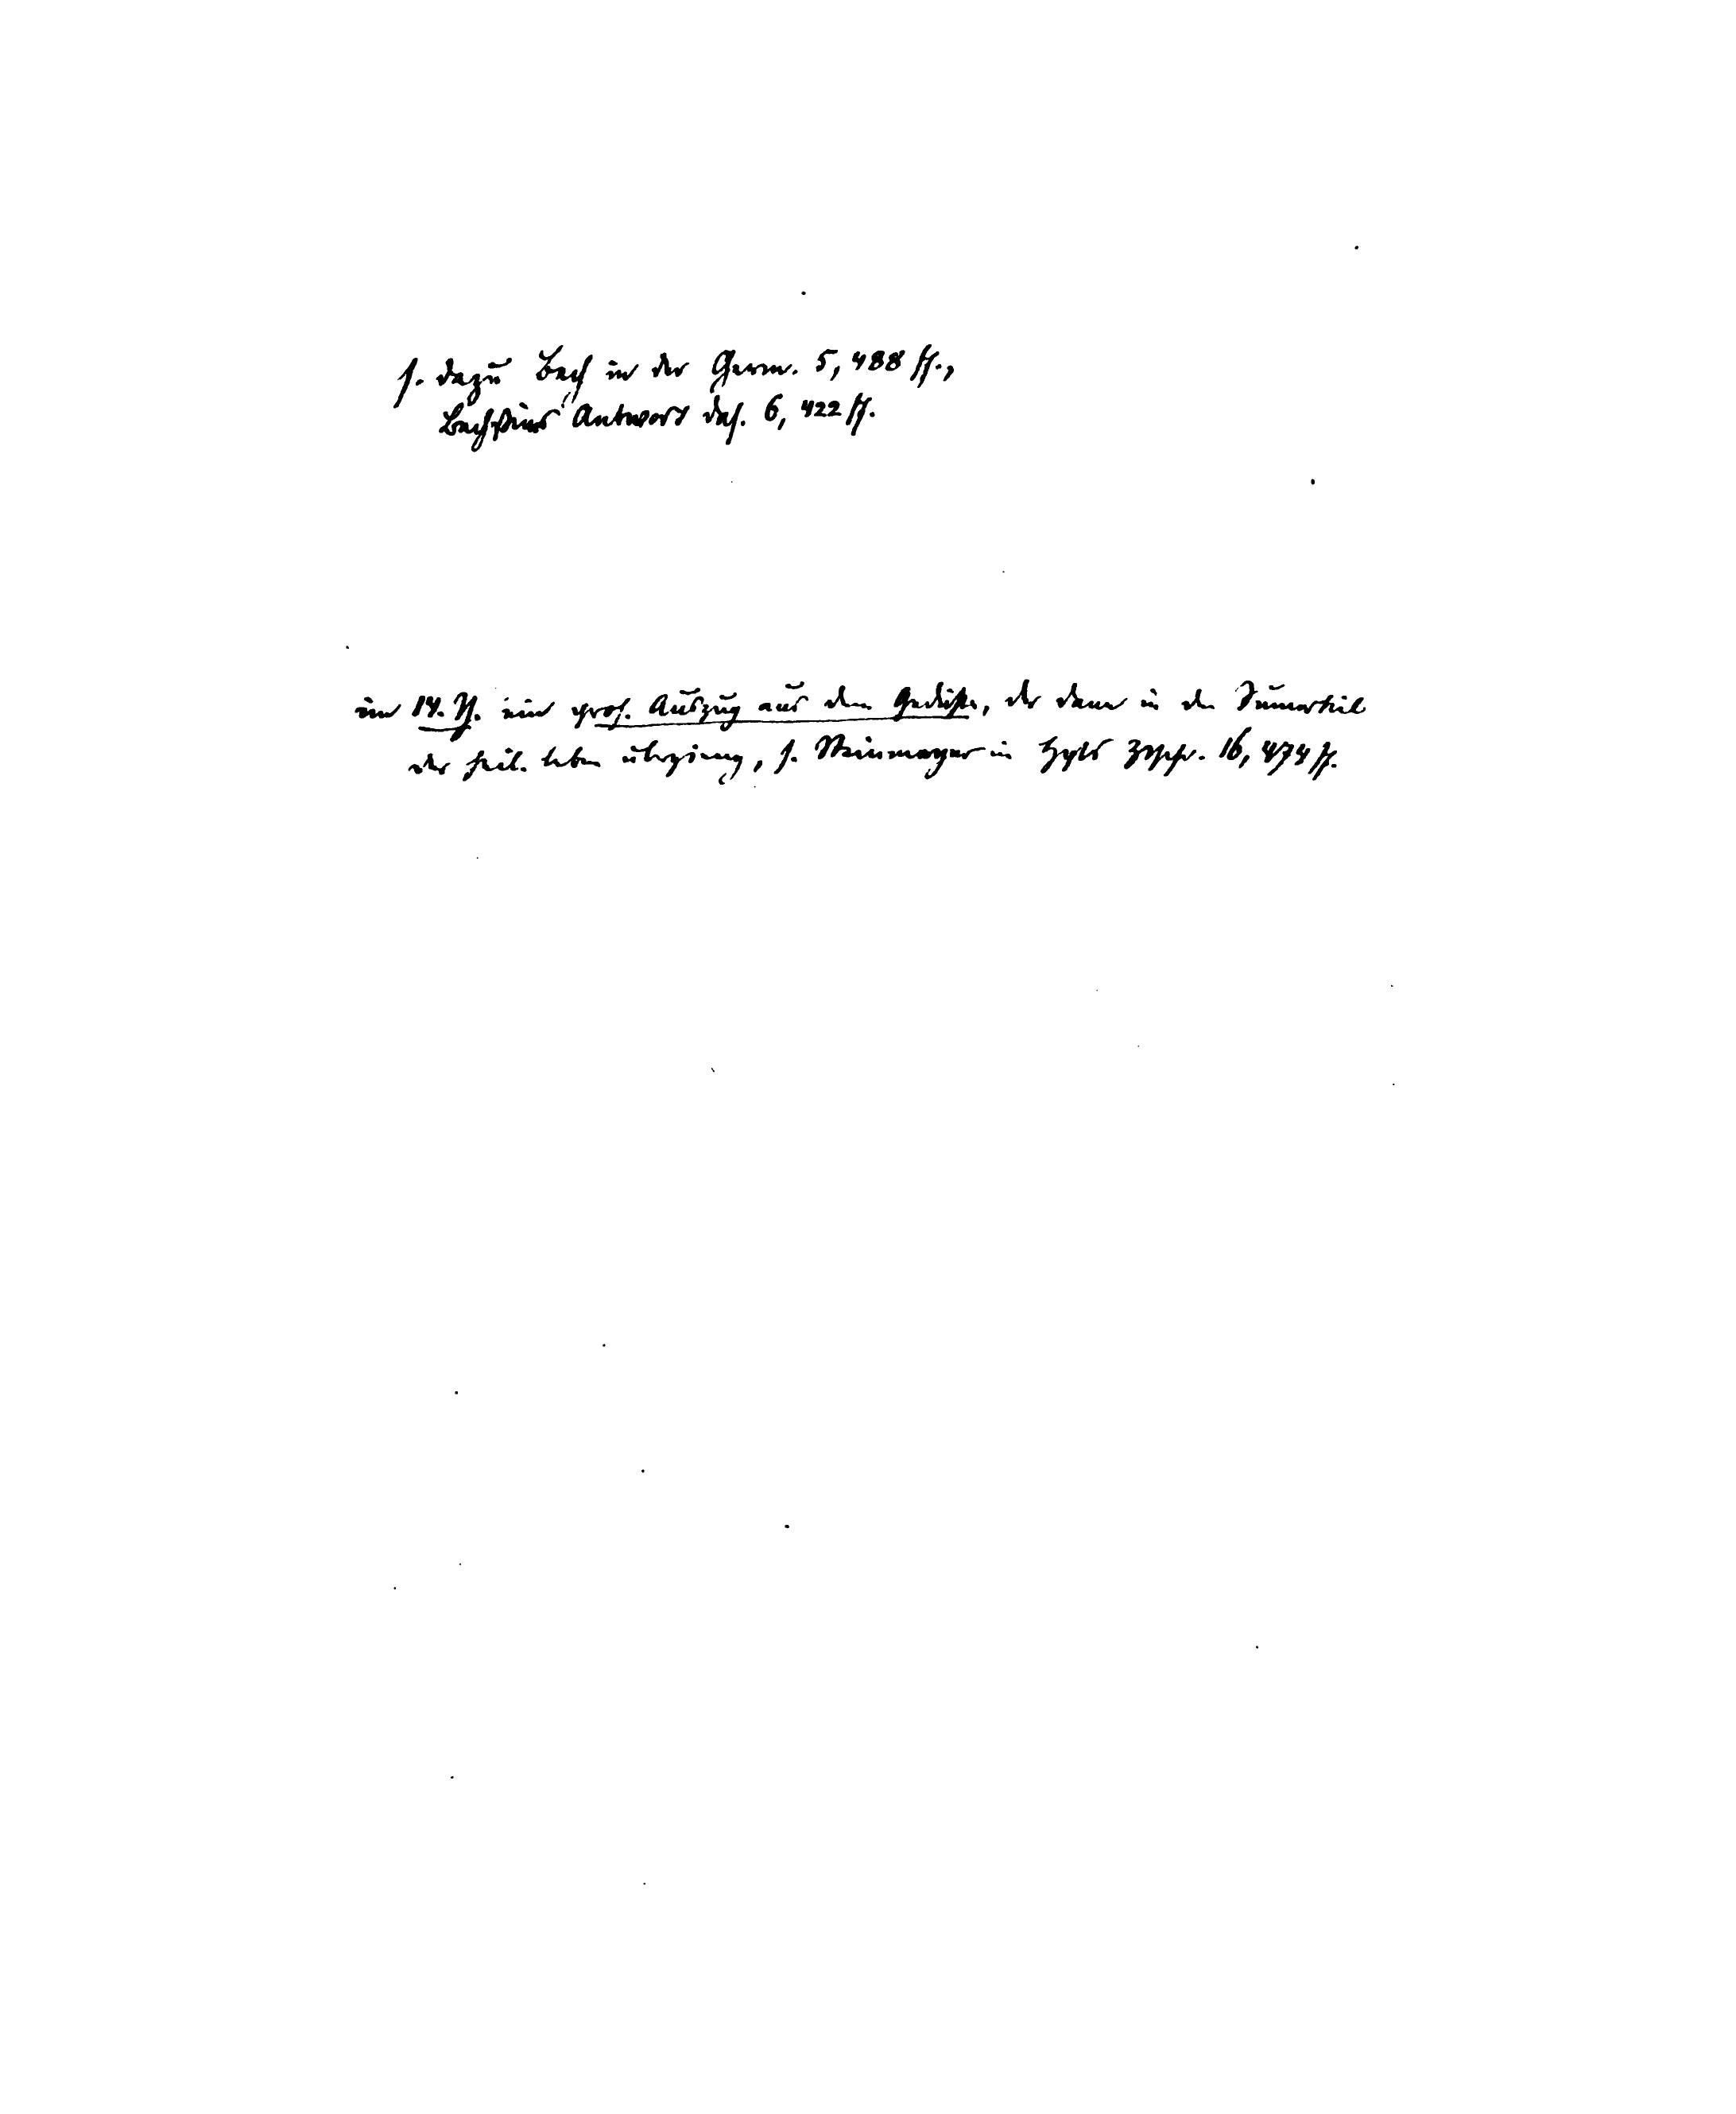 s. dazu Bech in der Germ. 5, 488 ff.,
Bechsteins Antwort das. 6, 422 ff.
im 14. Jh. ein pros. Auszug aus dem Gedichte, der dann in den Sumerteil
der heil. leben überging, s. Steinmeyer in Hpts Ztschr. 16, 474 ff.